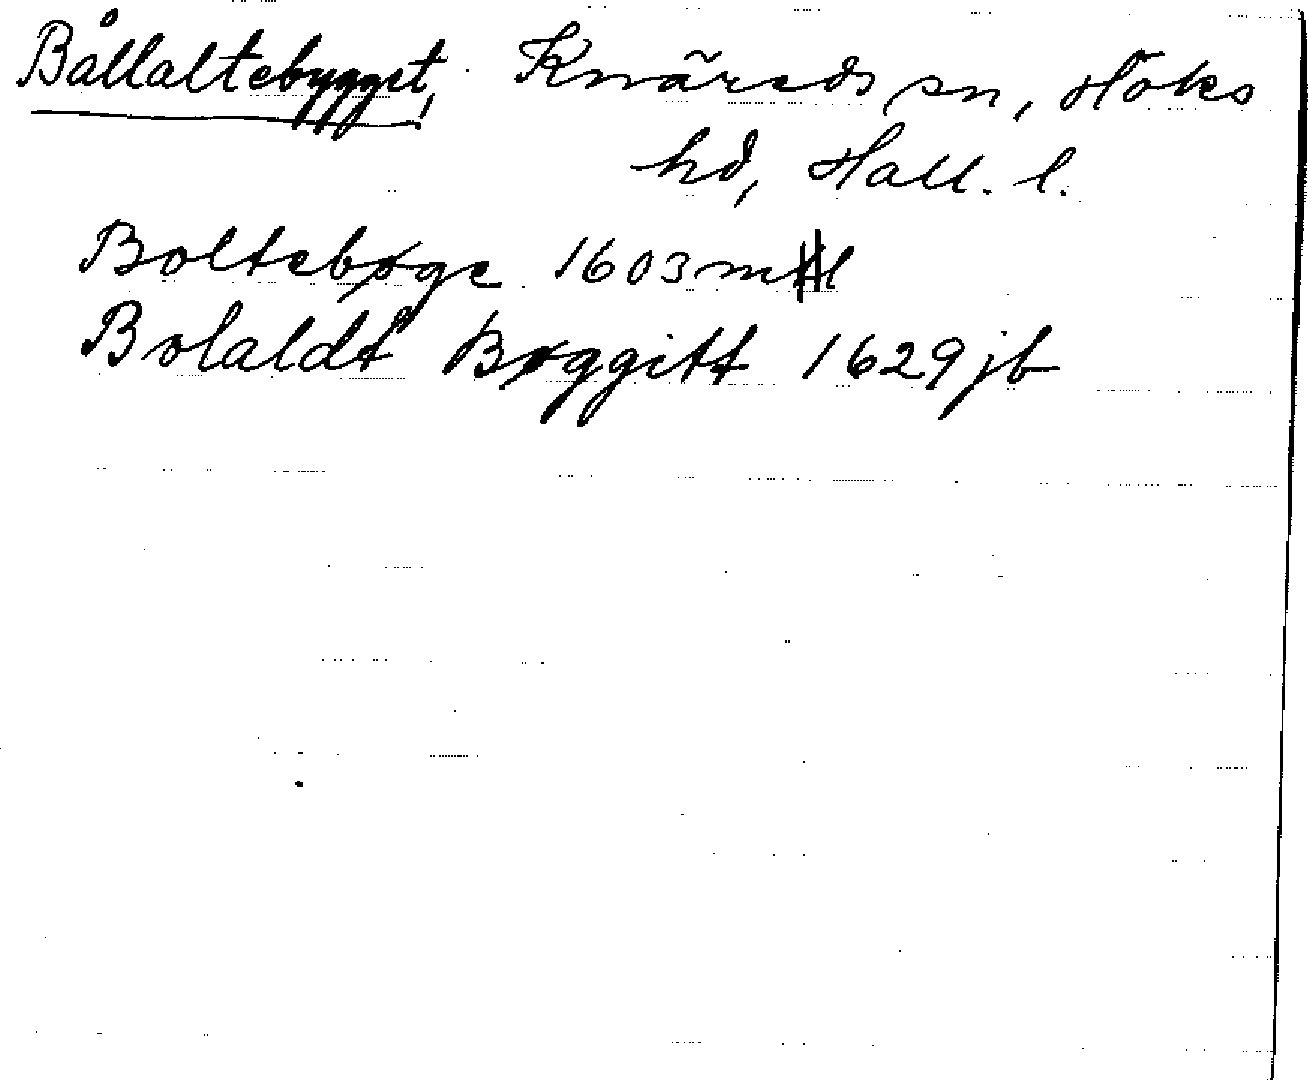 Bållaltebygget, Knäreds sn, Höks
hd, Hall. l.
Boltebøge 1603 mtl
Bolaldt Bøggitt 1629 jb